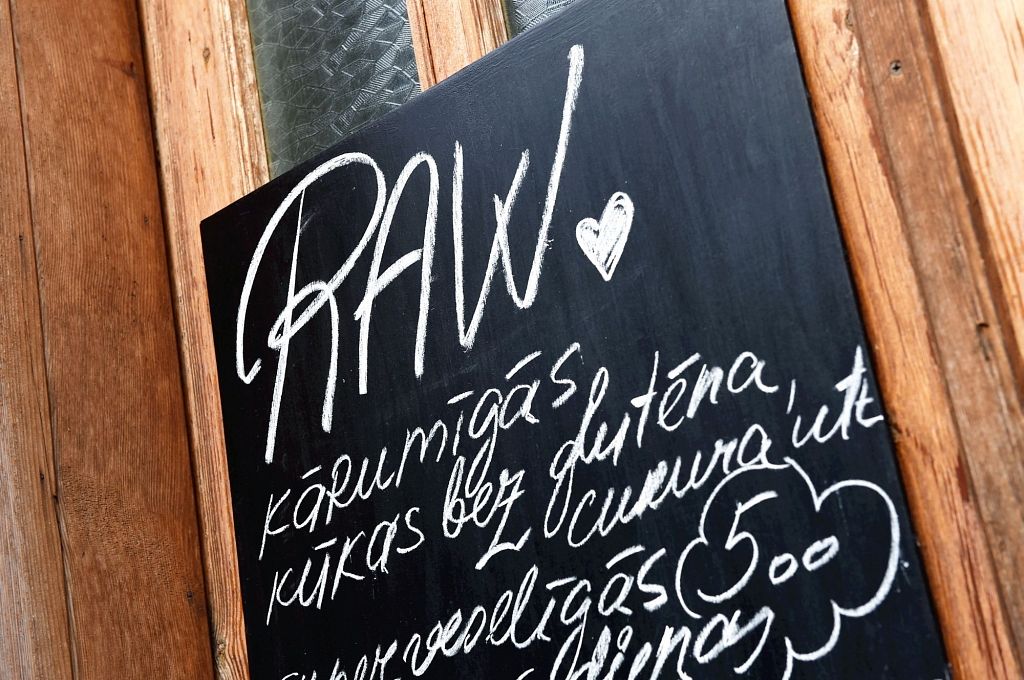 RAW.
kārumīgās
kūkas bez glutēna,
cukura, utt
superveselīgās 5.00
dienas